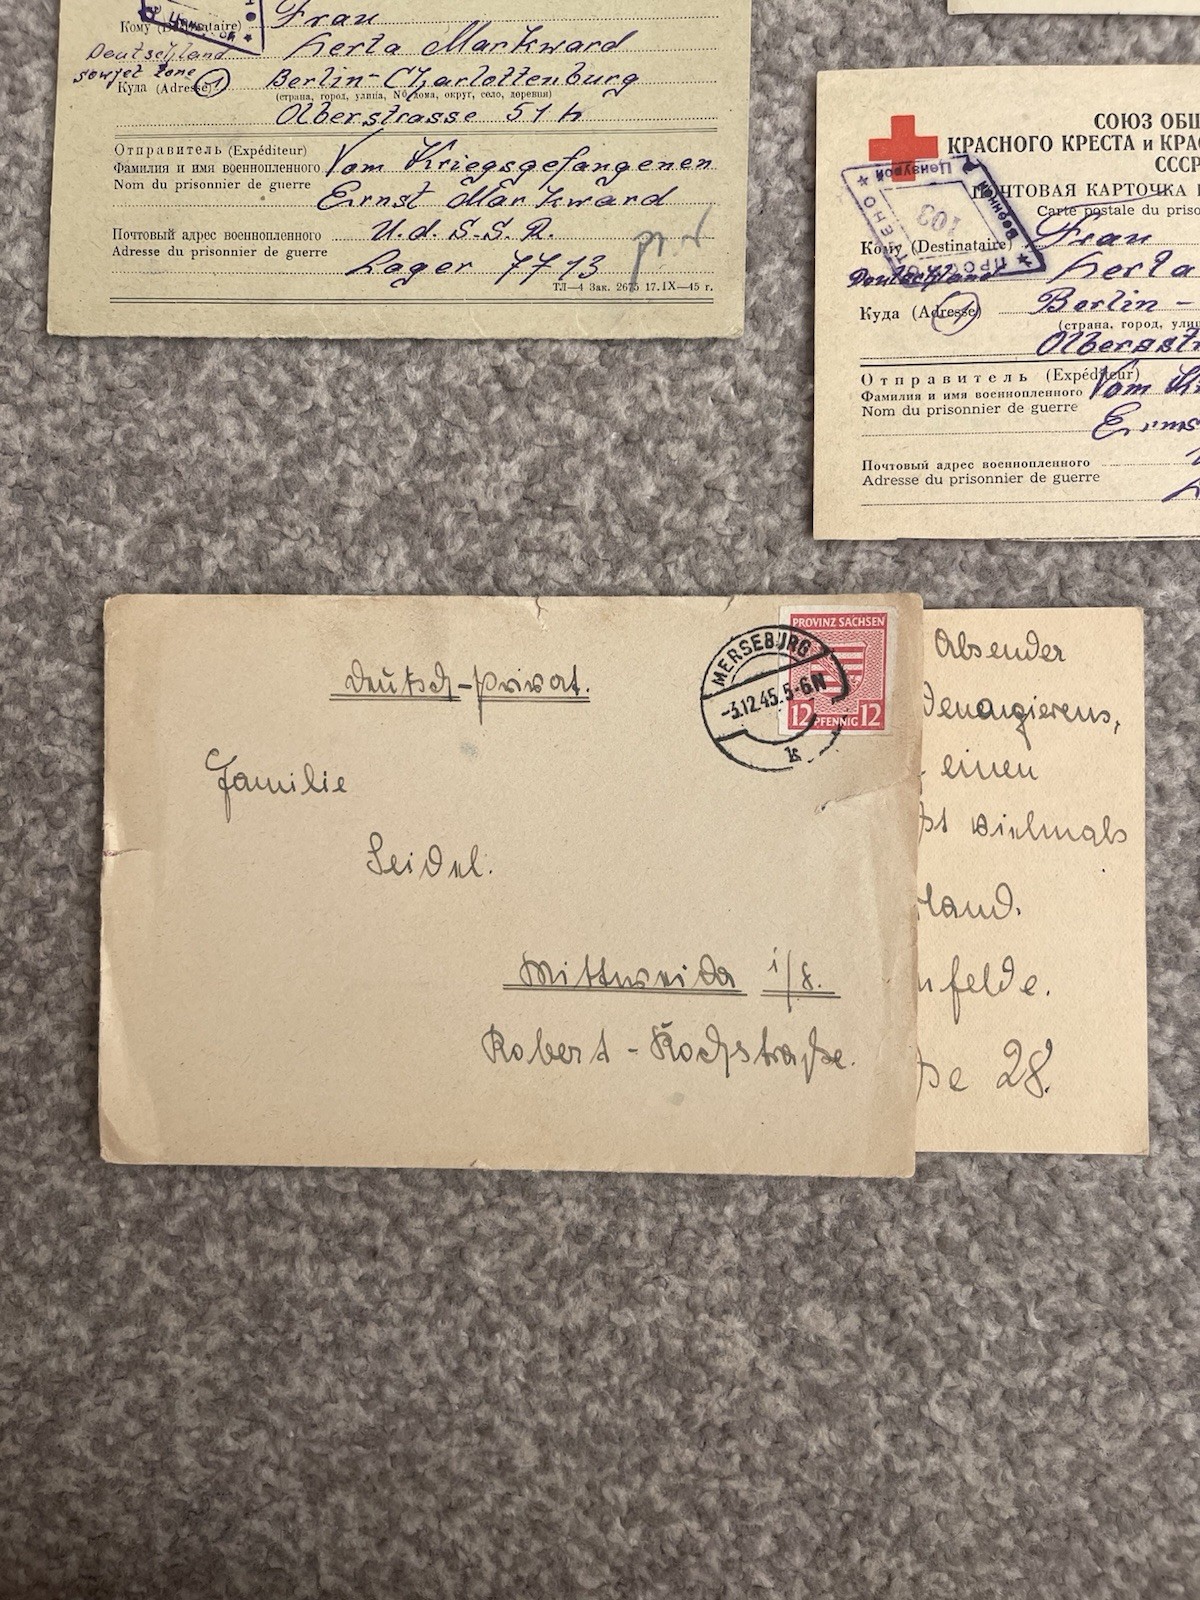 Кому (Destinataire) Frau
Deutschland Herta Markward
sowjet zone
Куда (Adresse) 1 Berlin-Charlottenburg
(страна, город, улица, № дома, округ, село, деревня)
Olberstrasse 51 h
Отправитель (Expéditeur)
Фамилия и имя военнопленного Vom Kriegsgefangenen
Nom du prisonnier de guerre Ernst Markward
Почтовый адрес военнопленного U.d.S.S.R.
Adresse du prisonnier de guerre Lager 7713
ТЛ—4 Зак. 2675 17.IX—45 г.
СОЮЗ ОБЩ
КРАСНОГО КРЕСТА и КРАС
СССР
ПОЧТОВАЯ КАРТОЧКА
Carte postale du priso
ПРОСМОТРЕНО
Военной
Цензурой
103
Кому (Destinataire) Frau
Deutschland Herta
Куда (Adresse) 1 Berlin -
(страна, город, ули
Olberst
Отправитель (Expéditeur)
Фамилия и имя военнопленного Vom
Nom du prisonnier de guerre
Почтовый адрес военнопленного
Adresse du prisonnier de guerre
Deutsch-Privat.
PROVINZ SACHSEN
12 PFENNIG 12
MERSEBURG
-3.12.45.5-6N
k
Familie
Seidel.
Mittweida i/S.
Robert-Kochstraße.
Absender
einen
vielmals
land.
nfelde.
ße 28.